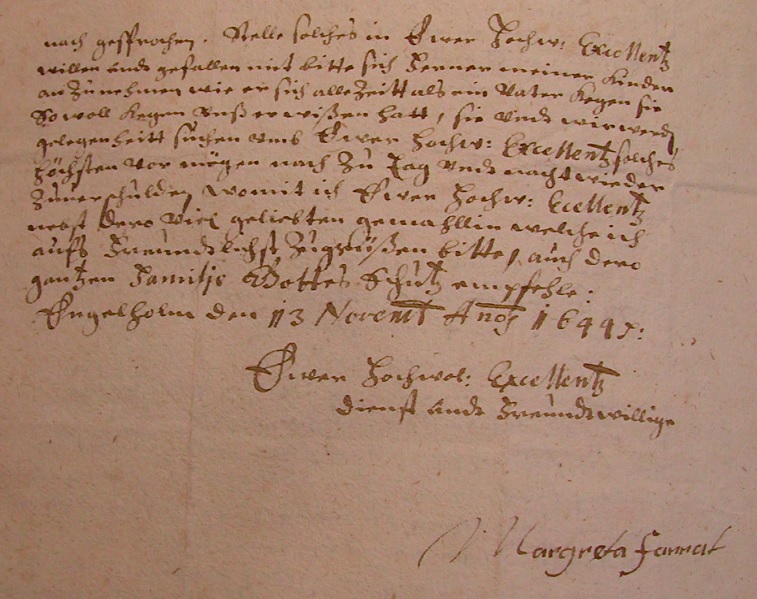 nach gesprochen. Stelle solches in Ewer Hochw: Excellentz
willen undt gefallen mit bitte sich ferner meiner Kinder
an Zunehmen wie er sich alle Zeitt als ein Vater Kegen sie
So woll Kegen Unß erwißen hatt, sie Undt wir werden
gelegenheitt suchen umb Ewer Hochw: Excellentz solches
höchsten Vor mügen nach Zu Tag Undt nacht wieder
Zuverschulden, womit ich Ewer Hochw: Ecellentz
nebst dero Viel geliebten gemahllin welche ich
aufs freundtlichst Zugrüßen bitte, auch dero
gantzen Familie Gottes Schutz empfehle:
Engelholm den 13 Novemb Ano 1644:
Ewer Hochwol: Excellentz
dienst undt Freundtwillige
Margreta